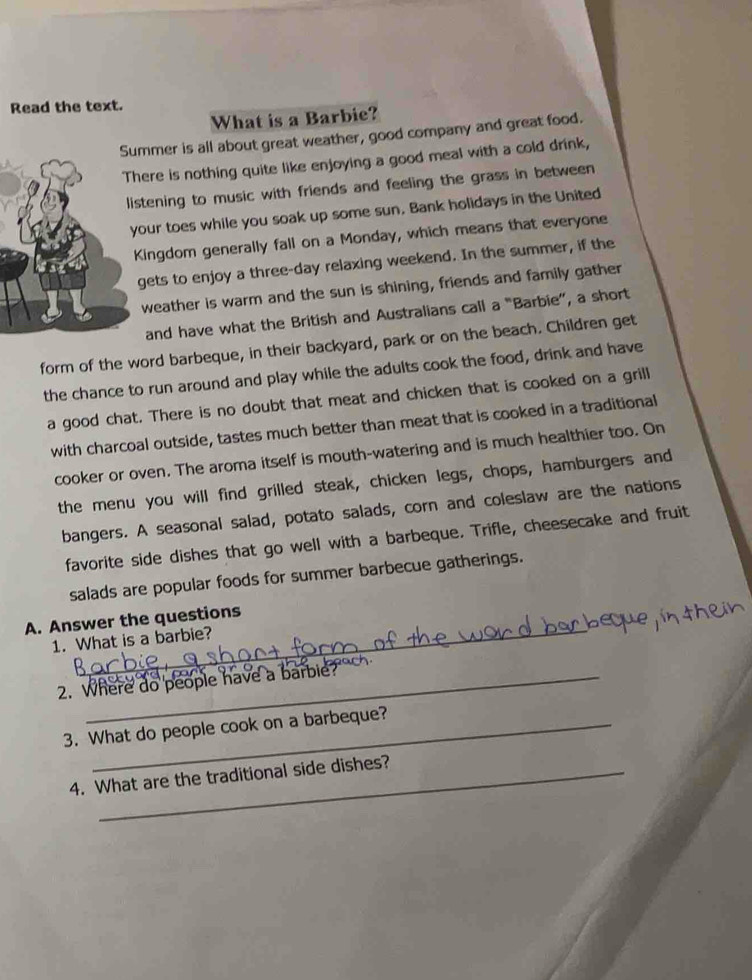 Read the text.
What is a Barbie?
Summer is all about great weather, good company and great food.
There is nothing quite like enjoying a good meal with a cold drink,
listening to music with friends and feeling the grass in between
your toes while you soak up some sun. Bank holidays in the United
Kingdom generally fall on a Monday, which means that everyone
gets to enjoy a three-day relaxing weekend. In the summer, if the
weather is warm and the sun is shining, friends and family gather
and have what the British and Australians call a "Barbie", a short
form of the word barbeque, in their backyard, park or on the beach. Children get
the chance to run around and play while the adults cook the food, drink and have
a good chat. There is no doubt that meat and chicken that is cooked on a grill
with charcoal outside, tastes much better than meat that is cooked in a traditional
cooker or oven. The aroma itself is mouth-watering and is much healthier too. On
the menu you will find grilled steak, chicken legs, chops, hamburgers and
bangers. A seasonal salad, potato salads, corn and coleslaw are the nations
favorite side dishes that go well with a barbeque. Trifle, cheesecake and fruit
salads are popular foods for summer barbecue gatherings.
A. Answer the questions
1. What is a barbie?
Barbie, a short form of the word barbeque, in their
backyard, park or on the beach.
2. Where do people have a barbie?
3. What do people cook on a barbeque?
4. What are the traditional side dishes?